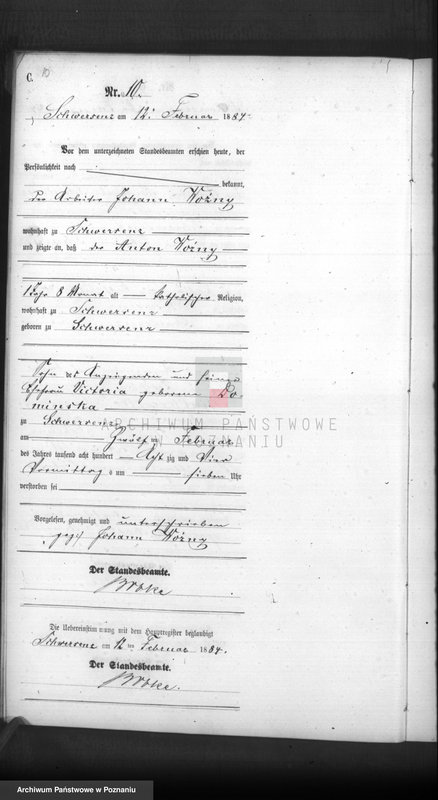 C. 10
Nr. 10.
Schwersenz am 12. Februar 1884.
Vor dem unterzeichneten Standesbeamten erschien heute, der
Persönlichkeit nach
bekannt,
der Arbeiter Johann Woźny
wohnhaft zu Schwersenz
und zeigte an, daß der Anton Woźny
1 Jahr 8 Monat alt katholischer Religion,
wohnhaft zu Schwersenz
geboren zu Schwersenz
Sohn des Anzeigenden und seiner
Ehefrau Victoria geborene Do-
minska
zu Schwersenz
am Zwölften Februar
des Jahres tausend acht hundert Acht zig und Vier
Vormittags um sieben Uhr
verstorben sei
Vorgelesen, genehmigt und unterschrieben
gez. Johann Woźny
Der Standesbeamte.
Die Uebereinstimmung mit dem Hauptregister beglaubigt
Schwersenz am 12 ten Februar 1884.
Der Standesbeamte.
ARCHIWUM PAŃSTWOWE
W POZNANIU
Archiwum Państwowe w Poznaniu